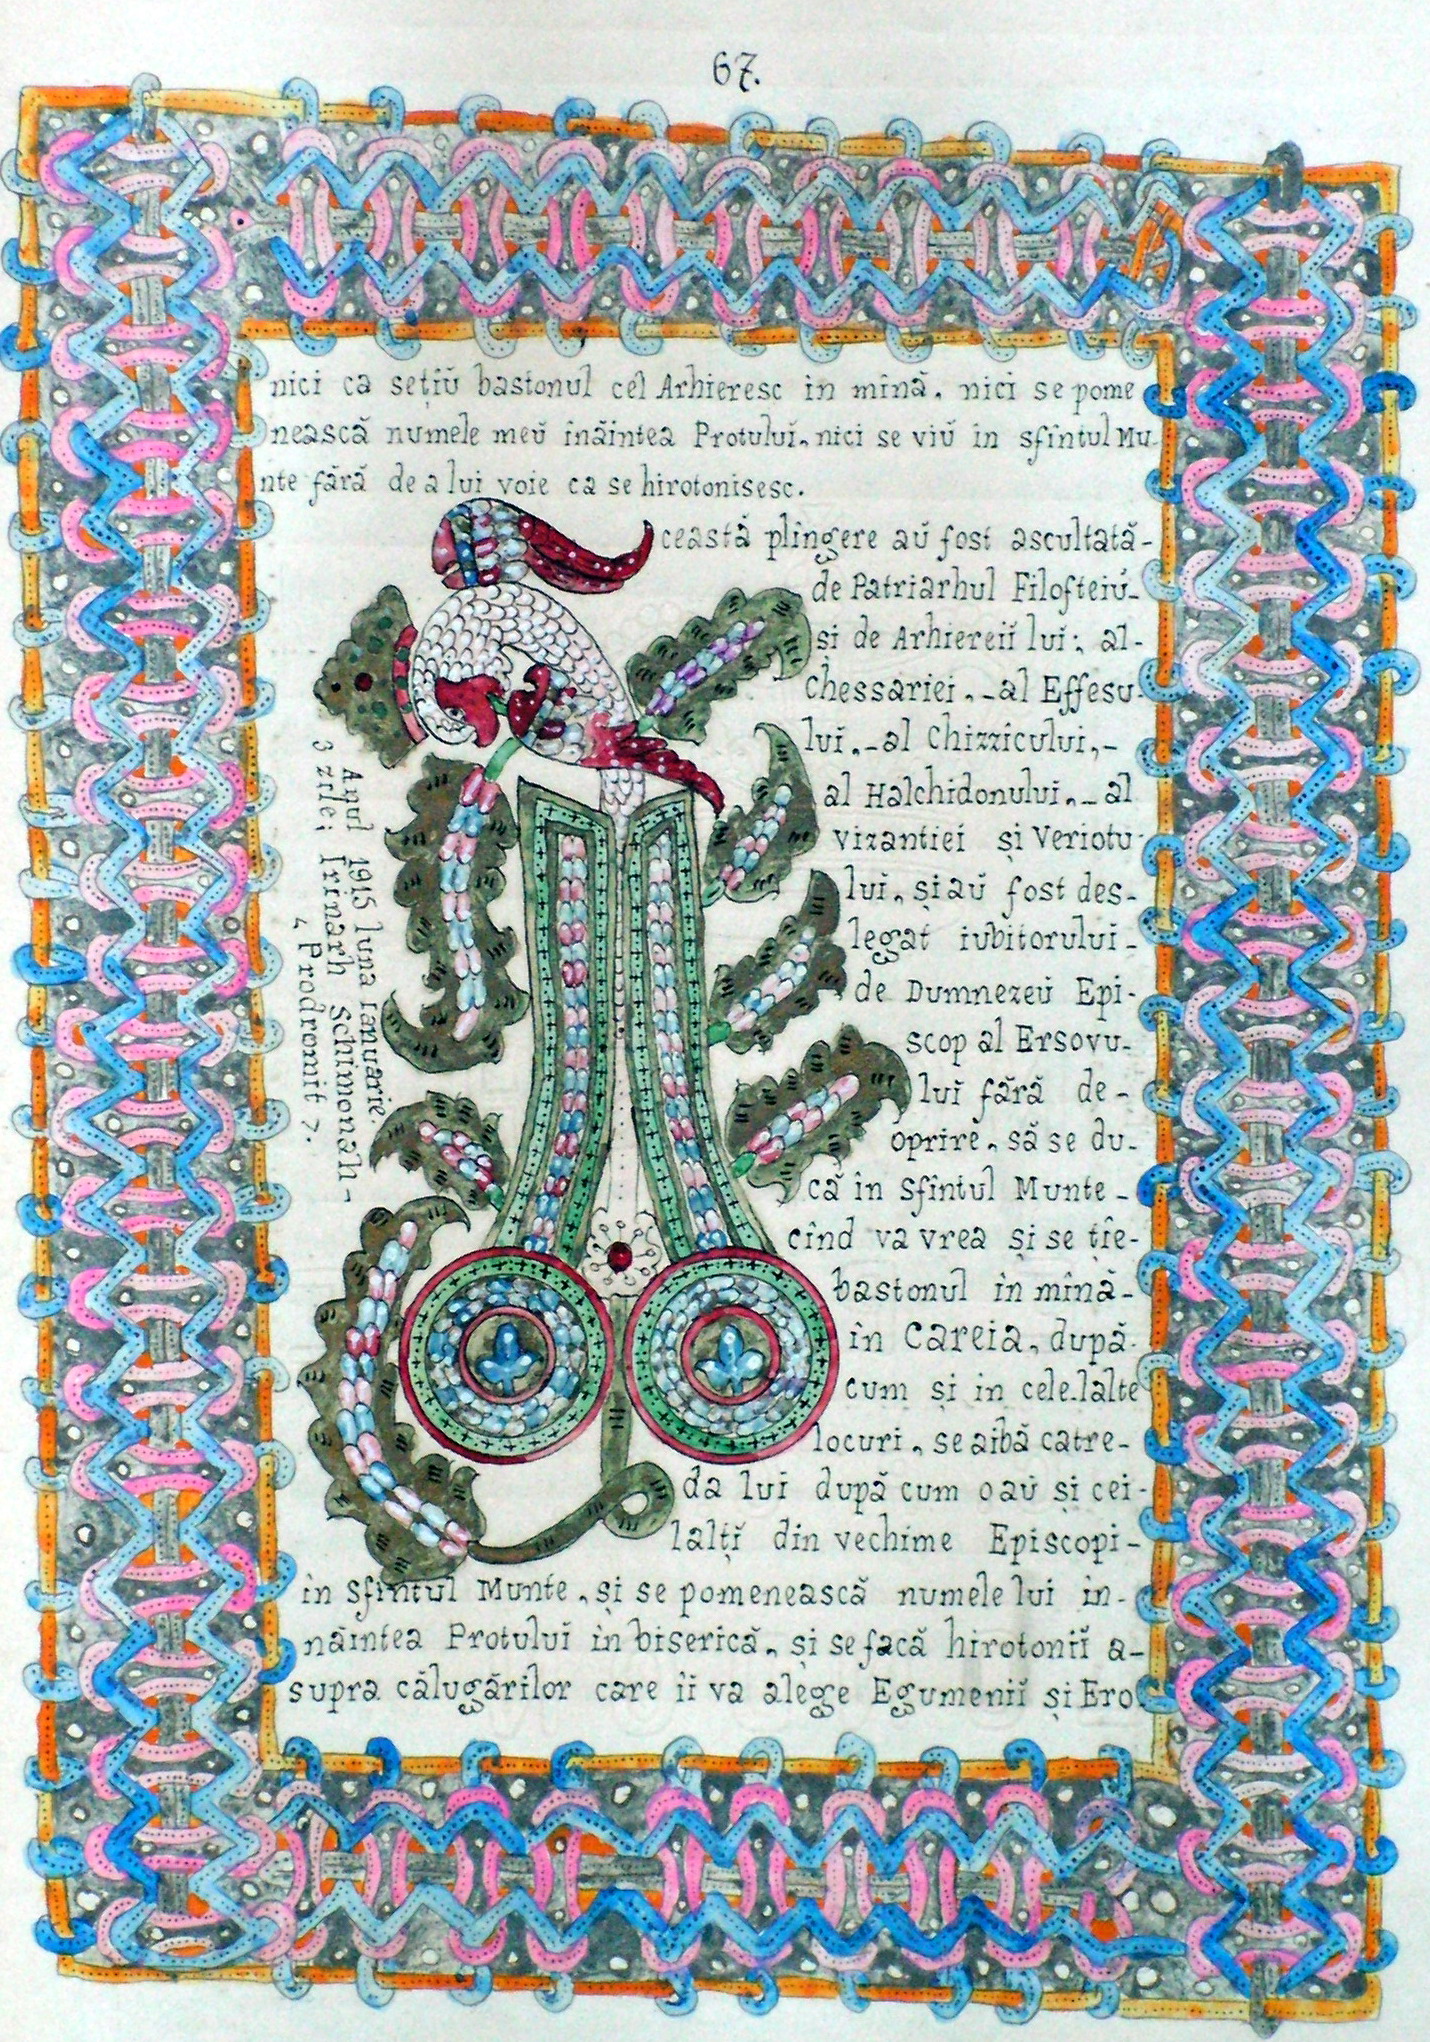 67.
nici ca sețiŭ bastonul cel Arhieresc in mină. nici se pome
nească numele meŭ înăintea Protului, nici se viŭ in sfîntul Mu-
nte fără de a lui voie ca se hirotonisesc.
ceastă plîngere aŭ fost ascultată-
de Patriarhul Filofteiŭ-
si de Arhiereiĭ luĭ: al-
chessariei, -al Effesu-
luĭ, -al Chizzicului, -
al Halchidonului, -al
vizantieĭ și Veriotu
luĭ, și aŭ fost des-
legat iubitorului -
de Dumnezeŭ Epi-
scop al Ersovu-
luĭ fără de-
oprire, să se du-
că în Sfîntul Munte -
cînd va vrea și se tîe-
bastonul în mînă-
în Careia, după-
cum și in cele.lalte
locuri, se aibă catre-
da lui după cum o aŭ și cei-
lalțĭ din vechime Episcopi-
în Sfîntul Munte, și se pomenească numele lui in-
năintea Protuluĭ în biserică, și se facă hirotoniĭ a-
supra călugărilor care îi va alege Egumeniĭ și Ero
Anul 1915 luna Ianuarie.
3 zile; Irinarh Schimonah-
Prodromit 7.